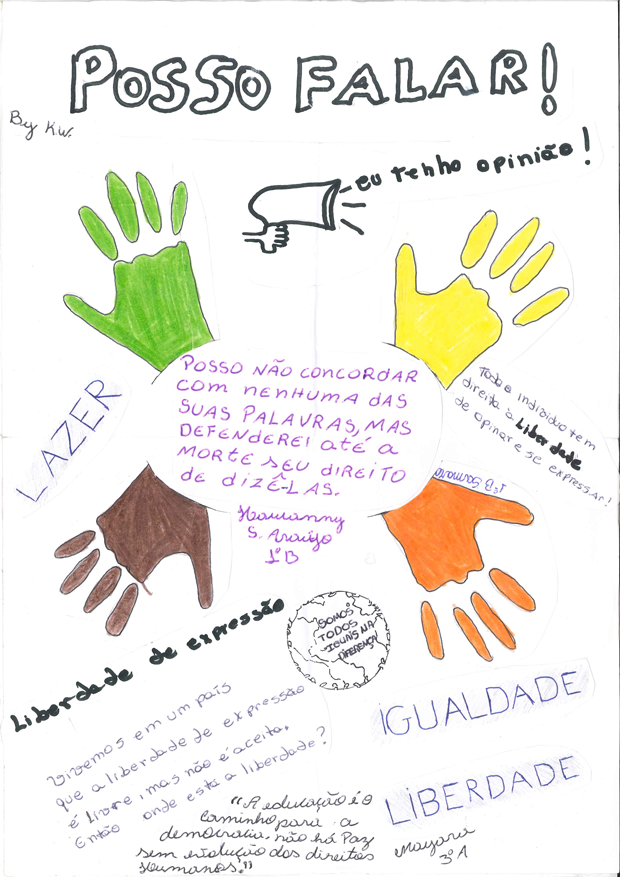 POSSO FALAR!
By K.W.
eu tenho opinião!
POSSO NÃO CONCORDAR
COM NENHUMA DAS
SUAS PALAVRAS, MAS
DEFENDEREI ATÉ A
MORTE SEU DIREITO
DE DIZÊ-LAS.
S. Araújo
1ºB
LAZER
Todo individuo tem
direito a Liberdade
de opinar e se expressar!
1º B
SOMOS
TODOS
IGUAIS NA
DIFERENÇA!
Liberdade de expressão
Vivemos em um país
que a liberdade de expressão
é livre, mas não é aceita.
Então onde está a liberdade?
IGUALDADE
LIBERDADE
"A educação é o
caminho para a
democracia. não há Paz
sem evolução dos direitos
Humanos."
Mayara
3ºA